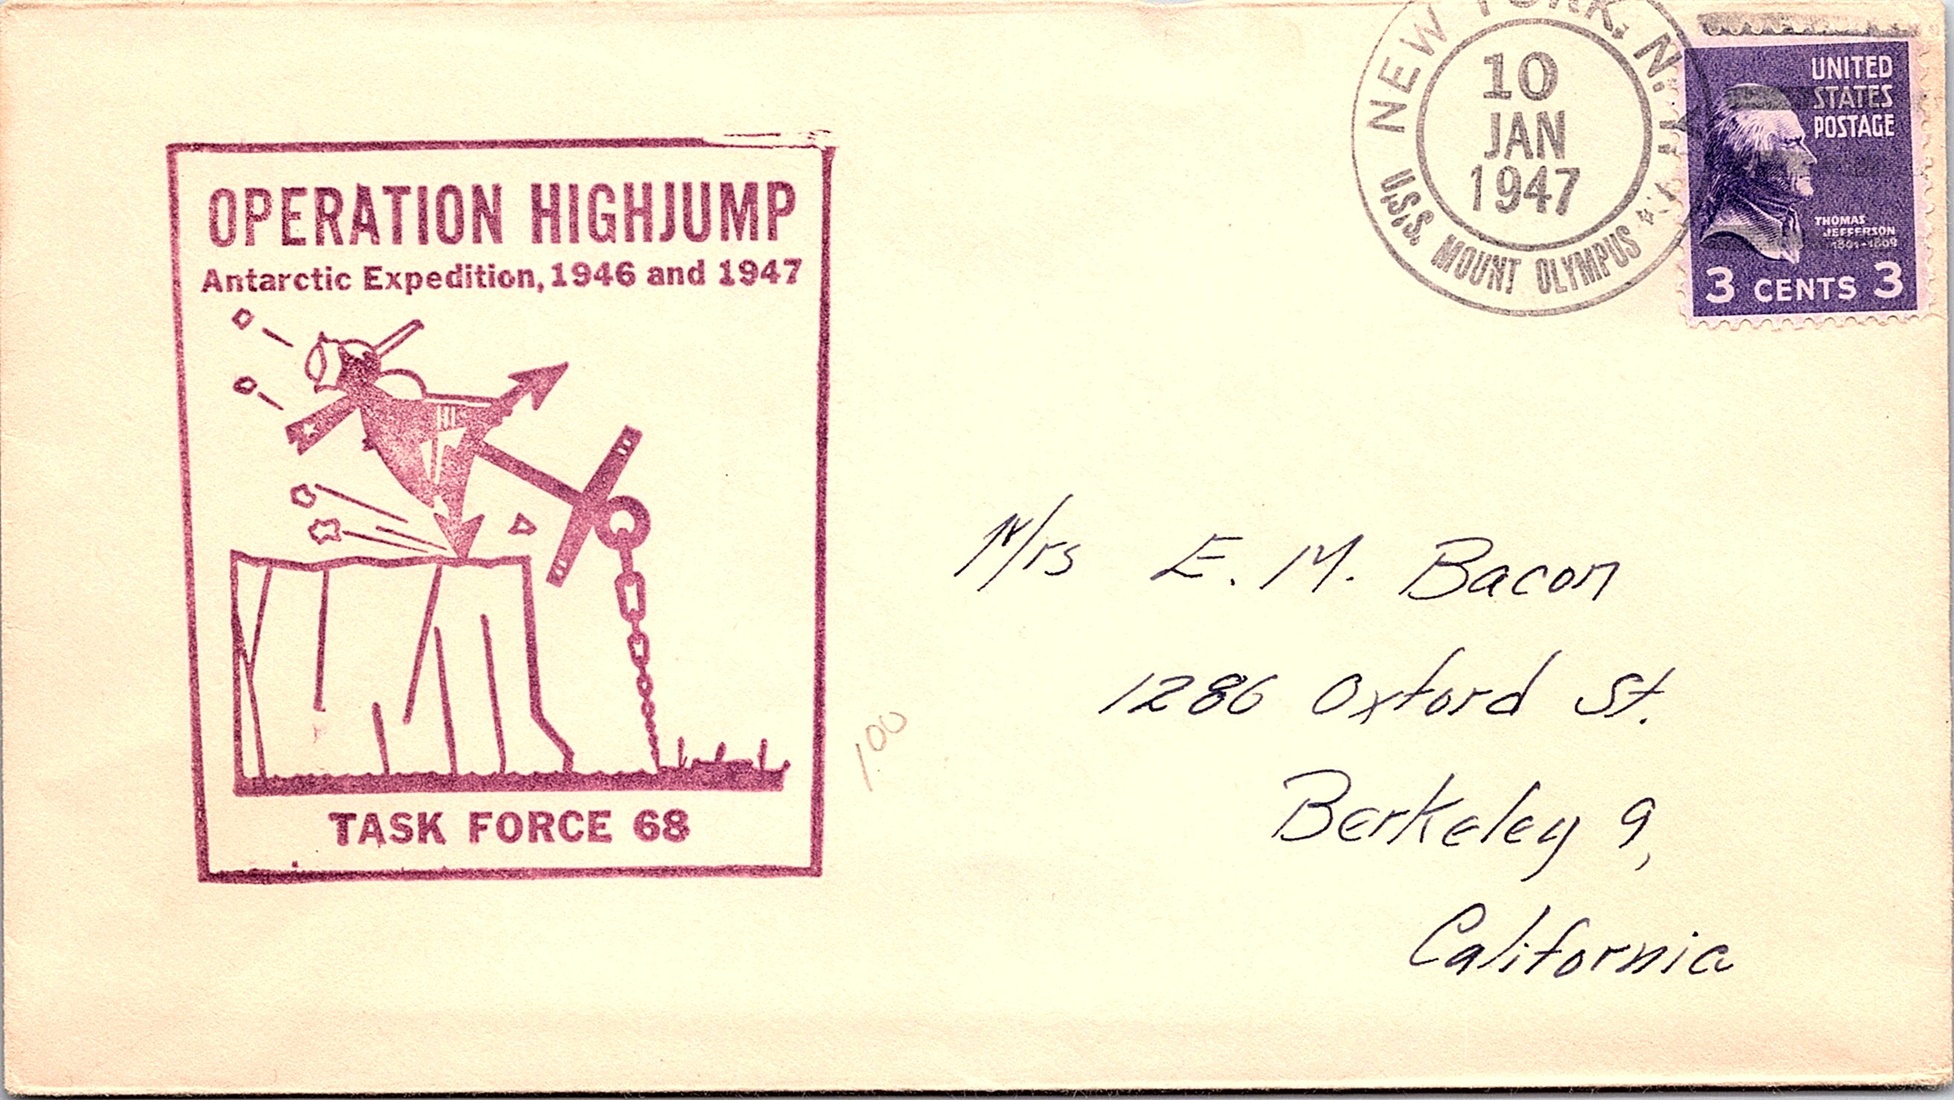 OPERATION HIGHJUMP
Antarctic Expedition, 1946 and 1947
TASK FORCE 68
NEW YORK, N.Y.
10
JAN
1947
U.S.S. MOUNT OLYMPUS
UNITED
STATES
POSTAGE
THOMAS
JEFFERSON
1801-1809
3 CENTS 3
Mrs E. M. Bacon
1286 Oxford St.
Berkeley 9,
California
1.00